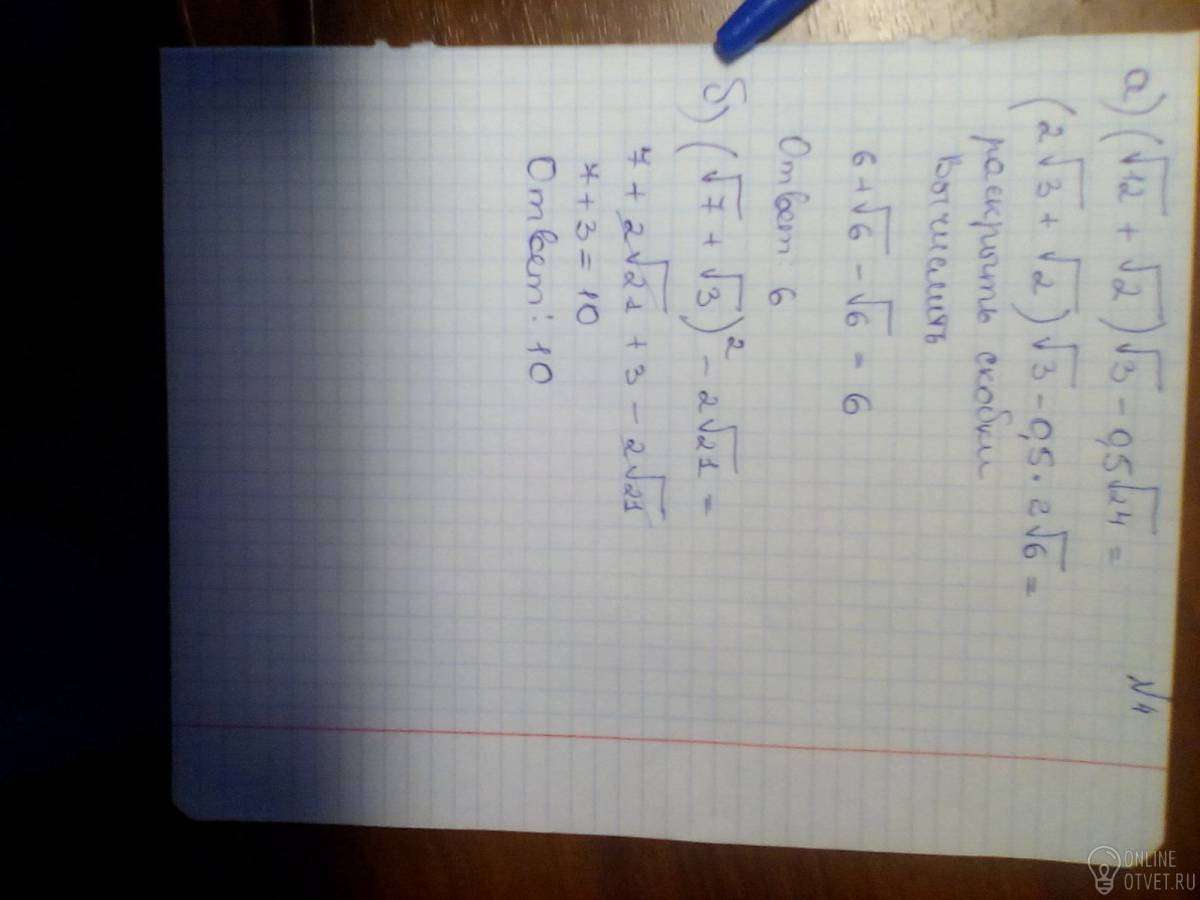 №4
а) (√12 + √2)√3 - 0,5√24 =
(2√3 + √2)√3 - 0,5 · 2√6 =
раскрыть скобки
Вычислить
6 + √6 - √6 = 6
Ответ: 6
б) (√7 + √3)² - 2√21 =
7 + 2√21 + 3 - 2√21
7 + 3 = 10
Ответ: 10
ONLINE
OTVET.RU